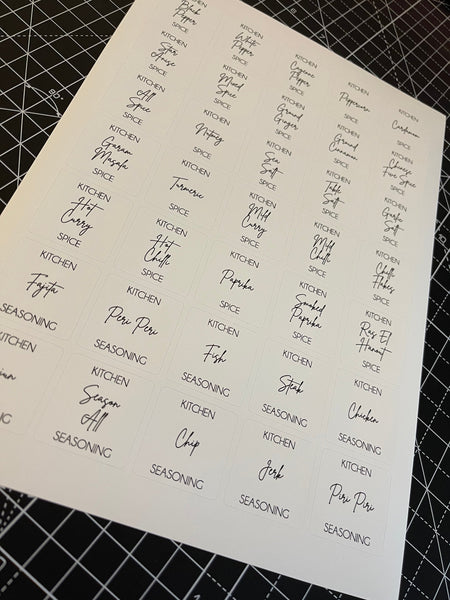 KITCHEN
Black
Pepper
SPICE
KITCHEN
White
Pepper
SPICE
KITCHEN
Cayenne
Pepper
SPICE
KITCHEN
Peppercorn
SPICE
KITCHEN
Cardamom
SPICE
KITCHEN
Star
Anise
SPICE
KITCHEN
Mixed
Spice
SPICE
KITCHEN
Ground
Ginger
SPICE
KITCHEN
Ground
Cinnamon
SPICE
KITCHEN
Chinese
Five Spice
SPICE
KITCHEN
All
Spice
SPICE
KITCHEN
Nutmeg
SPICE
KITCHEN
Sea
Salt
SPICE
KITCHEN
Table
Salt
SPICE
KITCHEN
Garlic
Salt
SPICE
KITCHEN
Garam
Masala
SPICE
KITCHEN
Turmeric
SPICE
KITCHEN
Mild
Curry
SPICE
KITCHEN
Mild
Chilli
SPICE
KITCHEN
Chilli
Flakes
SPICE
KITCHEN
Hot
Curry
SPICE
KITCHEN
Hot
Chilli
SPICE
KITCHEN
Paprika
SPICE
KITCHEN
Smoked
Paprika
SPICE
KITCHEN
Ras El
Hanout
SPICE
KITCHEN
Fajita
SEASONING
KITCHEN
Peri Peri
SEASONING
KITCHEN
Fish
SEASONING
KITCHEN
Steak
SEASONING
KITCHEN
Chicken
SEASONING
KITCHEN
KITCHEN
Season
All
SEASONING
KITCHEN
Chip
SEASONING
KITCHEN
Jerk
SEASONING
KITCHEN
Piri Piri
SEASONING